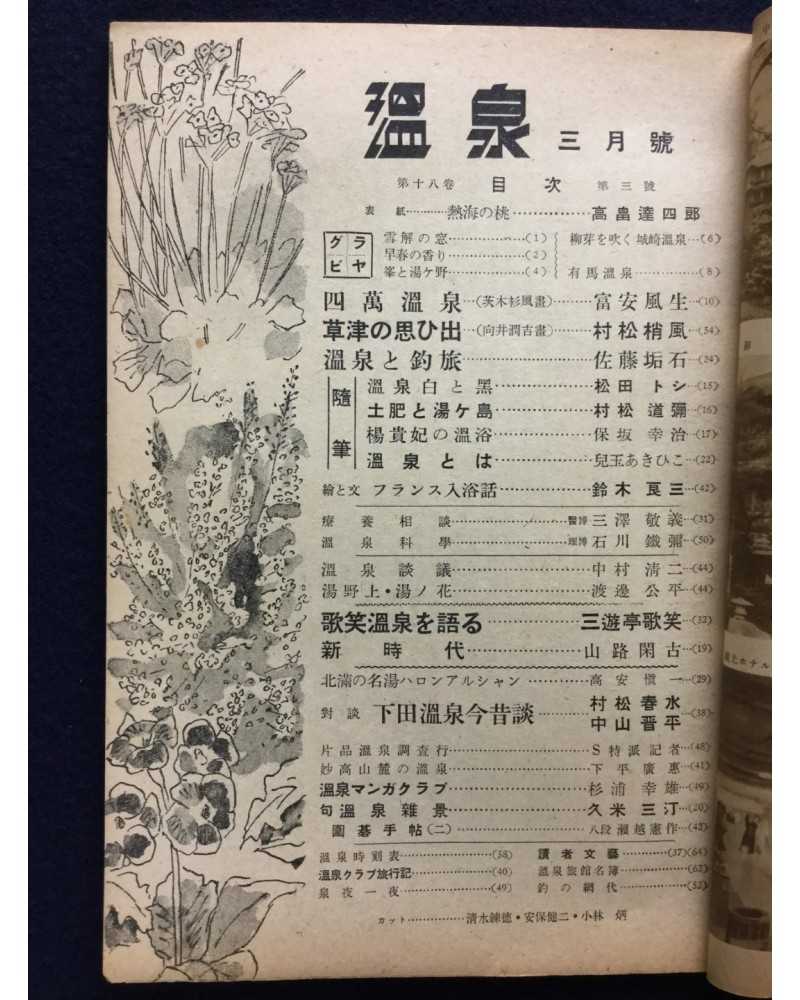 溫泉 三月號
第十八卷 目次 第三號
表紙………熱海の桃…………高畠達四郎
グラビヤ
雪解の窓………(1)
早春の香り………(2)
峯と湯ケ野………(4)
柳芽を吹く城崎溫泉…(6)
有馬溫泉…………(8)
四萬溫泉…(茨木杉風畫)……富安風生…(10)
草津の思ひ出…(向井潤吉畫)……村松梢風…(54)
溫泉と釣旅…………佐藤垢石…(24)
隨筆
溫泉白と黑…………松田トシ…(15)
土肥と湯ケ島…………村松道彌…(16)
楊貴妃の溫浴…………保坂幸治…(17)
溫泉とは…………兒玉あきひこ…(22)
繪と文 フランス入浴話…………鈴木良三…(42)
療養相談…………醫博 三澤敬義…(31)
溫泉科學…………理博 石川鐵彌…(50)
溫泉談議…………中村淸二…(44)
湯野上・湯ノ花…………渡邊公平…(44)
歌笑溫泉を語る…………三遊亭歌笑…(32)
新時代…………山路閑古…(19)
北滿の名湯ハロンアルシャン…………高安愼一…(29)
對談 下田溫泉今昔談……村松春水 中山晋平…(38)
片品溫泉調査行…………S特派記者…(48)
妙高山麓の溫泉…………下平廣惠…(41)
溫泉マンガクラブ…………杉浦幸雄…(49)
句溫泉雜景…………久米三汀…(20)
圍碁手帖(二)…………八段 瀨越憲作…(43)
溫泉時刻表…………(58)
溫泉クラブ旅行記…………(40)
泉夜一夜…………(49)
讀者文藝…………(37)(64)
溫泉旅館名簿…………(62)
釣の網代…………(52)
カット…………淸水錬德・安保健二・小林 炳